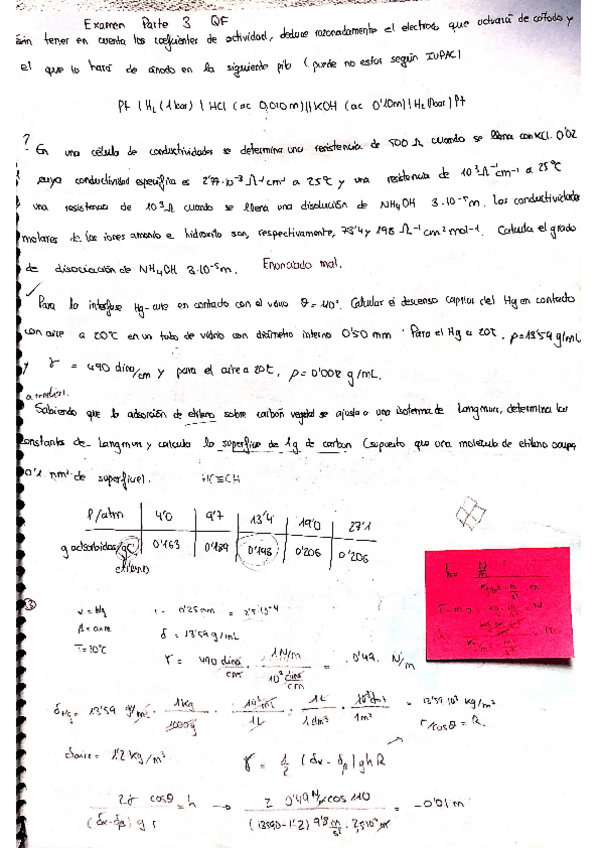 Examen Parte 3 QF
Sin tener en cuenta los coeficientes de actividad, deduce razonadamente el electrodo que actuará de cátodo y
el que lo hará de ánodo en la siguiente pila (puede no estar según IUPAC)
Pt | H₂ (1bar) | HCl (ac 0,010m) || KOH (ac 0'10m) | H₂ (1bar) Pt
? En una célula de conductividades se determina una resistencia de 500 Ω cuando se llena con KCl 0'02
cuya conductividad específica es 2'77·10⁻³ Ω⁻¹cm⁻¹ a 25℃ y una resistencia de 10³ Ω⁻¹cm⁻¹ a 25℃
una resistencia de 10³ Ω cuando se llena una disolución de NH₄OH 3·10⁻⁵m. Las conductividades
molares de los iones amonio e hidroxilo son, respectivamente, 73'4 y 198 Ω⁻¹cm²mol⁻¹. Calcula el grado
de disociación de NH₄OH 3·10⁻⁵m. Enunciado mal.
✓ Para la interfase Hg-aire en contacto con el vidrio θ = 140°. Calcular el descenso capilar del Hg en contacto
con aire a 20℃ en un tubo de vidrio con diámetro interno 0'50 mm. Para el Hg a 20℃, ρ=13'59 g/mL
y γ = 490 dina/cm y para el aire a 20℃, ρ = 0'0012 g/mL.
Sabiendo que la adsorción de etileno sobre carbón vegetal se ajusta a una isoterma de Langmuir, determina las
constantes de Langmuir y calcula la superficie de 1g de carbon (supuesto que una molécula de etileno ocupa
0'1 nm² de superficie). HC≡CH
P/atm | 4'0 | 9'7 | 13'4 | 19'0 | 27'1
g adsorbidos/gC | 0'163 | 0'189 | 0'198 | 0'206 | 0'206
etileno
h=
③
α = Hg
β = aire
T = 20℃
r = 0'25mm = 2'5·10⁻⁴
δ = 13'59 g/mL
γ = 490 dina/cm · 1N/m / 10³ dina/cm = 0'49 N/m
δHg = 13'59 g/mL · 1kg/1000g · 10³mL/1L · 1L/1dm³ · 10³dm³/1m³ = 13'59·10³ kg/m³
r/cosθ = R.
δaire = 1'2 kg/m³
γ = 1/2 (δα - δβ) g h R
2γ cosθ / (δα-δβ) g r = h → 2 0'49 N/m cos 140 / (13590-1'2) 9'8 m/s² · 2,5·10⁻⁴ m = -0'01 m